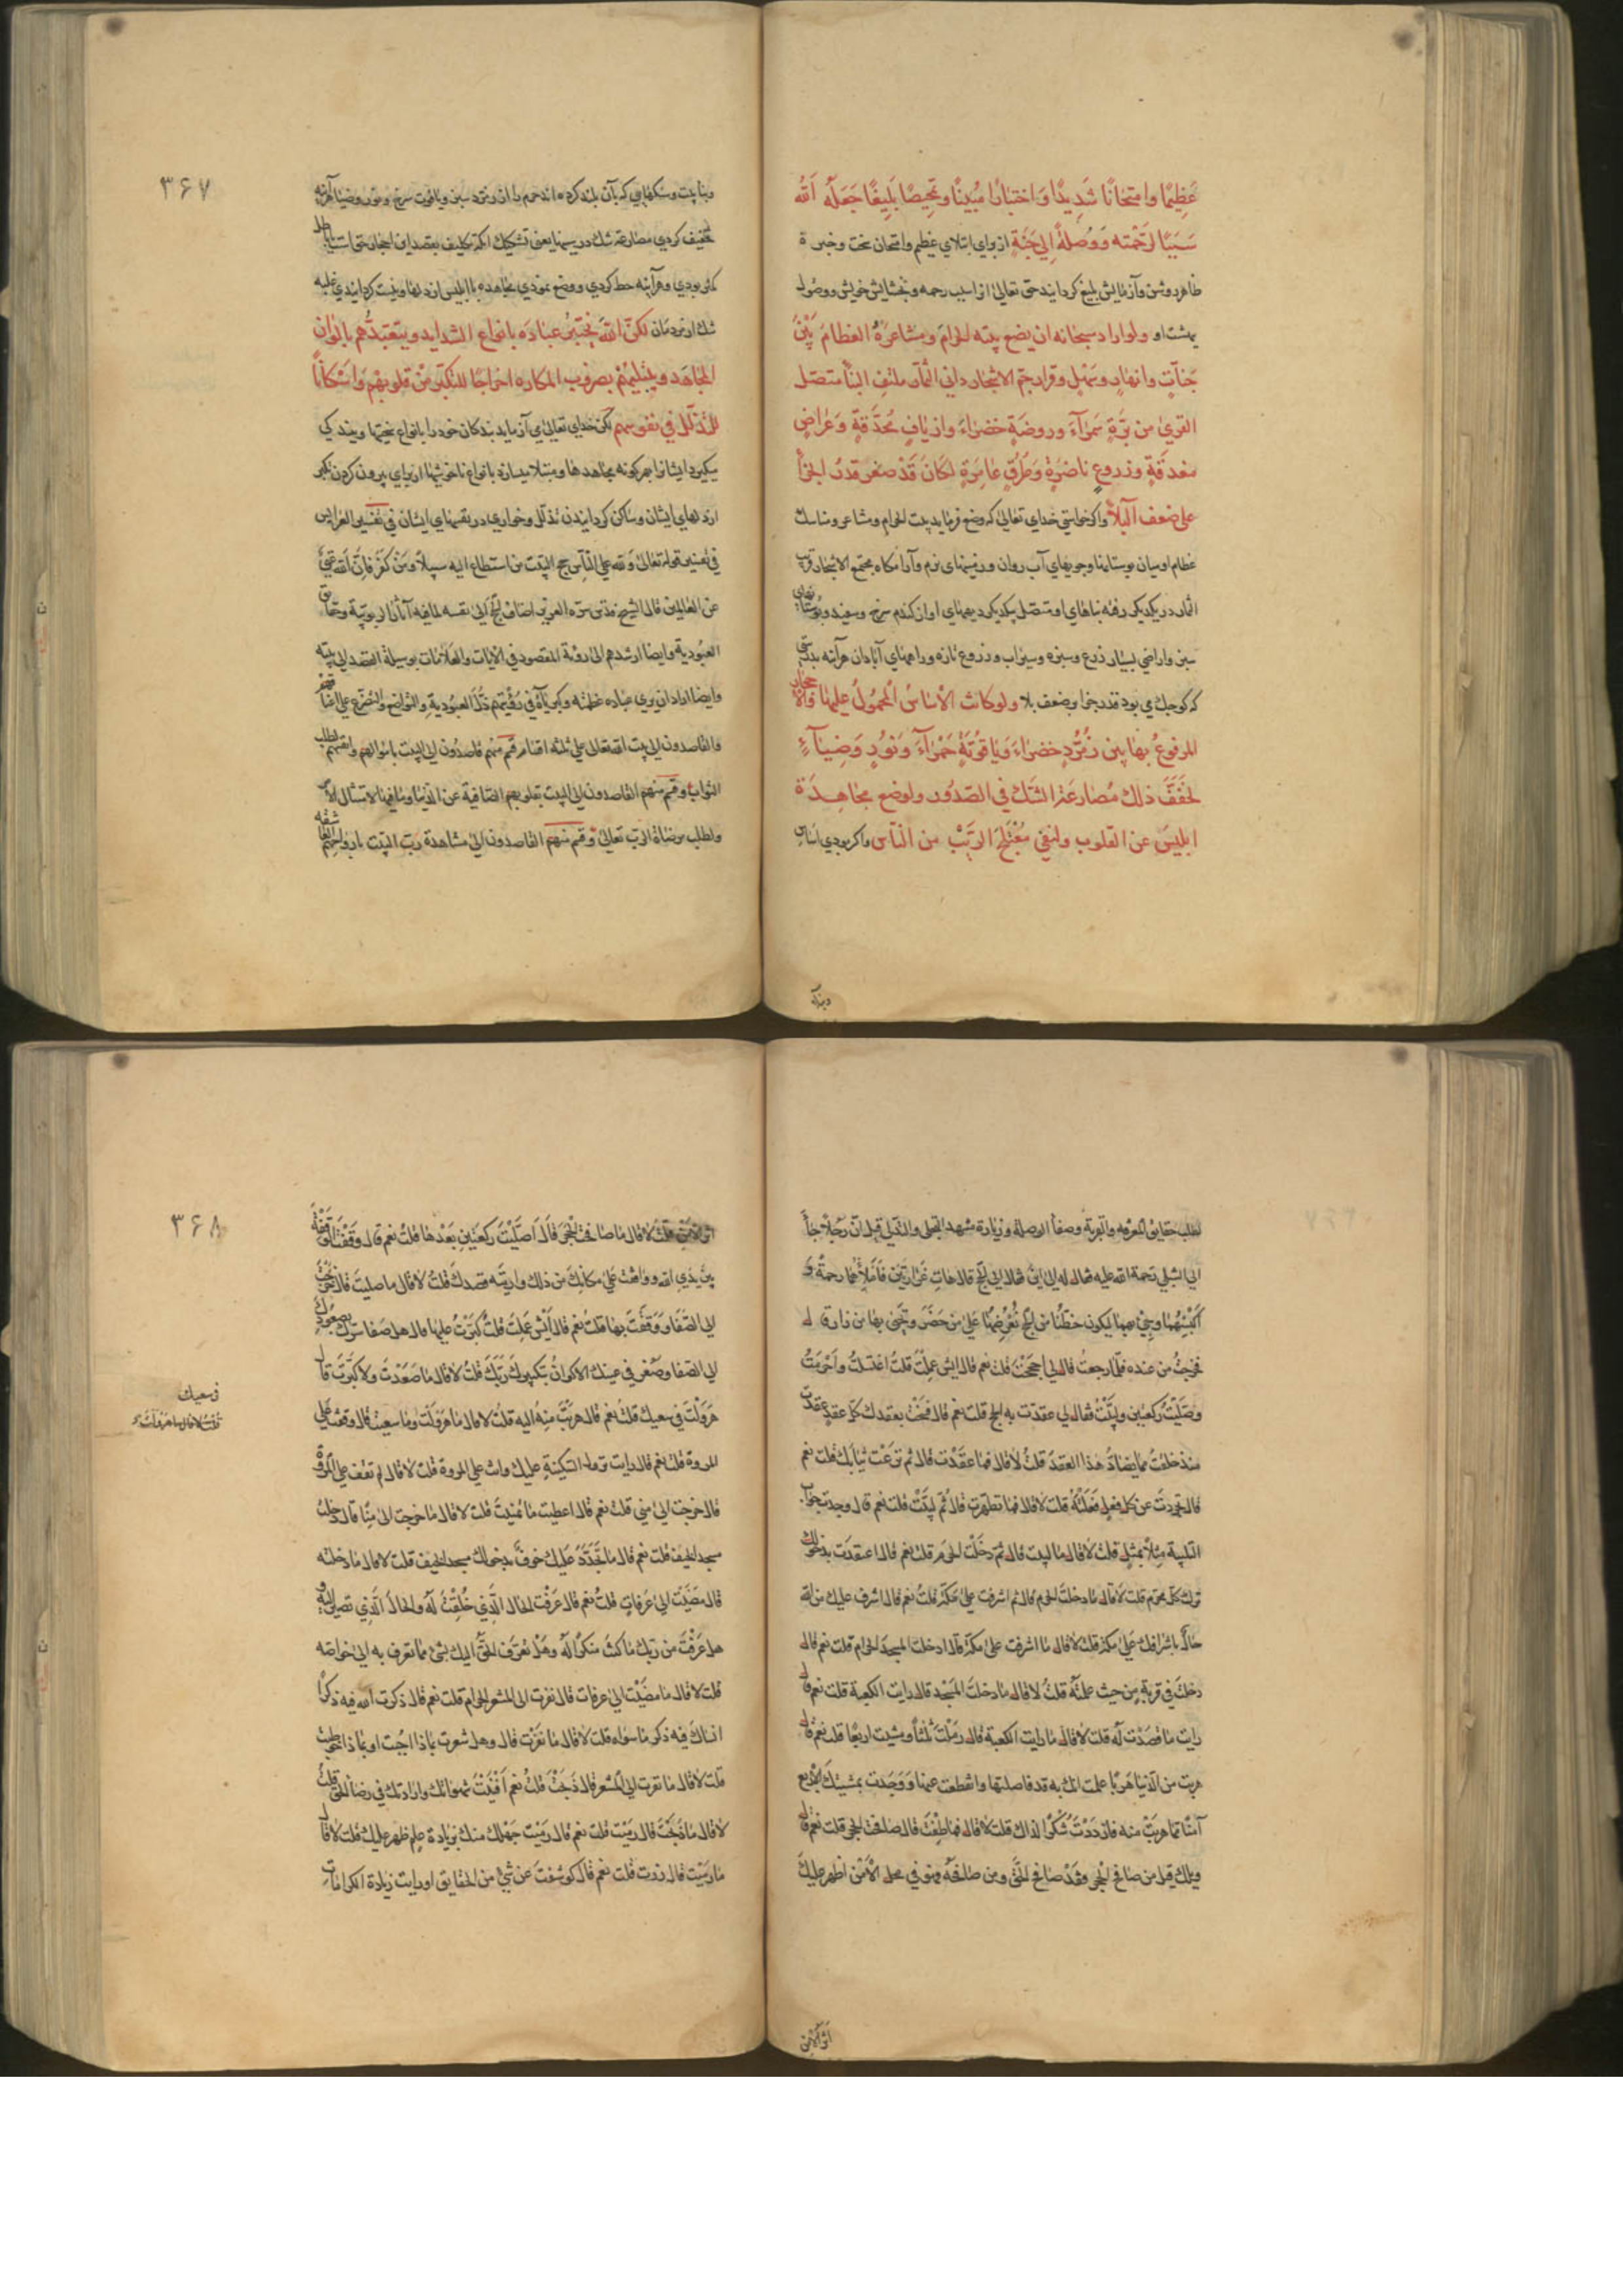 عَظِيمًا وامتحانًا شَدِيدًا وَاختبارًا مُبينًا وتمحيصًا بَلِيغًا جَعَلَهُ اَللّٰه
سَبَبًا لِرَحْمَتِه وَوُصلَةً اِلى جَنَّتِهِ از براي ابتلاي عظيم وامتحان سخت وخبرة
ظاهر روشن وآزمايش بليغ كردانيد حق تعالى انرا سبب رحمه وبخشايش خويش ووصول
بهشت او ولو اراد سبحانه ان يضع بيته الحرامَ ومشاعرَهُ العظامَ بَيْنَ
جَنّاتٍ وانهارٍ وسَهْلٍ وقرارٍ جمّ الاشجار داني الثمار ملتف البنا متصل
القرى من بُرّةٍ سَمراءَ وروضةٍ خضراءَ واريافٍ محُدَّقةٍ وَعِراصٍ
مغدقةٍ وزروعٍ ناضرةٍ وَطُرُقٍ عامرةٍ لكانَ قَدْ صغر قدرُ الجزأ
على ضعف البَلأ واكر خواستي خداي تعالى كه وضع فرمايد بيت الحرام ومشاعر ومناسك
عظام اوميان بوستانها وجويهاي آب روان وزمينهاى نرم وآرامكاه مجتمع الاشجار قريب
الثمار در يكديكر رفته بناهاي او متصل يكديكر ديههاى او از كندم سرخ وسفيد وبوستانهاى
سبز واراضي بسيار زرع وسبزه وسيراب وزروع تازه وراههاى آبادان هرآينه بدرستى
كه كوچك مي بود قدر جزا بر ضعف بلا ولو كانت الأساسُ المحمولُ عليها والأحجار
المرفوعُ بها بين زُمُرُّدٍ خضراءَ وَياقُوتَةٍ حَمْراءَ وَنُورٍ وَضِياءٍ
لخفّفَ ذلك مُصارعَة الشّكّ في الصّدور ولوضع مجاهدة
ابليسَ عن القلوب ولنفي مُعْتَلَجَ الرَّيْبْ من النّاس واكر بودي اساس
دبنا
٣٦٧
وبنا بيت وسنكهايى كه بآن بلند كرده اند حرم را از زمرد سبز وياقوت سرخ ونور وضيا هرآينه
تخفيف كردي مصارعه شك در سينها يعني تشكيك انكه تكليف بقصد اين احجار حق است يا باطل
كمتر بودي وهرآينه حط كردي ووضع نمودي مجاهده با ابليس از دلها ونيست كردانيدي غلبه
شك از مردمان لكنّ اللّٰه يَختبِرُ عبادَه بانواع الشدايد ويتعبّدُهم بالوان
المجاهد ويبتليهُمْ بضروب المكاره اخراجًا للتكبّر مِنْ قلوبهم وَاسْكانًا
للتّذلّل في نفوسهم لكن خداي تعالى مي آزمايد بندكان خود را بانواع سختيها وبندكي
ميكيرد ايشانرا بهر كونه مجاهدها ومبتلا ميسازد بانواع ناخوشيها از براي بيرون كردن تكبر
از دلهاي ايشان وساكن كردانيدن تذلل وخواري در نفسهاي ايشان في تفسير العرايس
في تفسير قوله تعالى وَلله على النّاسِ حج البَيْت من استطاع اليه سبيلاً ومَنْ كفَرَ فانّ اللّه غنىّ
عن العالمين قال الشيخ قدّس سرّه العزيز اضاف الحَجّ الى نفسه لما فيه آثار الربوبيّة وحقايق
العبُودية وايضا ارشدهم الى رؤية المقصود في الآيات والعلامات بوسيلة القصد الى بيته
وايضا اراد ان يري عباده عظمته وكبرياءه في رُؤيتهم ذُلّ العبُودية والتواضع والتضرّع على اعتاب
والقاصدون الى بيت الله تعالى على ثلثه اقسام قسم منهم قاصدون الى البيت باموالهم وانفسهم لطلب
الثواب وقسم منهم القاصدون الى البيت بقلوبهم الصّافية عن الدنيا وما فيها لامتثال الأمر
ولطلب مرضاة الرب تعالى وقسم منهم القاصدون الى مشاهدة رَبّ البَيْت بارواحهم العاشقة
لطلب حقايق المعرفه والقربة وصفأ الوصلة وزيادة مشهد التجلى والتدلى قيل انّ رَجُلاً جأ
الى الشبلي رَحمة الله عليه فقال له الى اين فقال الى الحجّ قال هات غرارتين فاملأهما رحمةً و
اكبسْهُما وجئ بهما ليكون حظّنا من الحَجّ نُعْرِضُها عَلى مَن حَضَرَ ونحيّى بها من زارنا قال
فخرجتُ من عنده فلمّا رجعتُ قال لي اَحججْتَ قلت نعم قال ايش عملتَ قلتُ اغتسلتُ واَحْرَمتُ
وصَلَّيْتُ ركعتين ولَبَّيْتُ فقال لي عقدت به الحج قلت نعم قال فسخْتَ بعقدك كلّ عقدٍ عقدتَ
منذ خلقتَ مما يضادّ هذا العقدَ قلتُ لا قال فما عقَدْتَ قال ثم نزَعْتَ ثيابَك قلت نعم
قال تجردتَ عن كل فعلٍ فعَلْتَهُ قلت لا قال فما نزعت قال ثم تطهرت قلت نعم قال وجدت جوابَ
التلبية مِثلاً بمثلٍ قلت لا قال ما لبيت قال ثم دَخَلْتَ الحرَم قلت نعم قال اعتقدَت بدخولك
ترك كلّ محرّم قلت لا قال ما دخلتَ الحرم قال ثم اشرفت على مكّة قلتُ نعم قال اشرف عليك من الله
حالٌ باشرافك عَلى مكّة قلت لا قال ما اشرفت على مكّة قال دخلت المسجدَ الحرام قلت نعم قال
دخلتَ في قربةٍ مِن حيث علمْتَهُ قلتُ لا قال ما دخلتَ المَسْجد قال رايت الكعبة قلت نعم قال
رايت ما قصَدْت لَه قلت لا قال ما رايت الكعبة قال رَمَلْتَ ثَلثًا ومشيت اربعًا قلت نعم قال
هربت من الدّنيا هَربًا علمت انّك به قد فاصلتها وانقطعت عنها وَوَجَدت بمشيتك الأربع
آمنًا مما هربْتَ منه فازدَدْتَ شُكرًا لذلك قلت لا قال فما طِفْتَ قال صافحت الحجر قلت نعم قال
ويلك قيل من صافح الحجر فقَدْ صافح الحقّ ومن صافحه فهو في محل الأمن اظهر عليك
اثر الأمن
٣٦٨
اثر الأمن قلت لا قال ما صافحت الحجَرَ قال أصلّيْتَ ركعتين بعْدها قلتُ نعم قال وقفت الوَقْفَةَ
بين يدي الله ووقفت على مكانك من ذلك واريته قصدك قلتُ لا قال ما صليت قال خرجت
الى الصّفا ووَقفْتَ بها قلت نعم قال أيْش عَمِلتَ قلتُ كبّرتُ عليها قال هل صفا سرّك بصعودك
الى الصّفا وصَغر في عينك الأكوانُ بتكبيرك رَبَّكَ قلتُ لا قال ما صَعدْتَ ولا كبّرتَ قال
هَروَلْتَ في سعيك قلتُ نعم قال هربْتَ منهُ اليه قلتُ لا قال ما هَرْوَلت وما سعيت قال وقفْتَ على
المروة قلت نعم قال رايت نزول السّكينةِ عليك وانت على المروة قلت لا قال لم تقف على المروة
قال خرجت الى منى قلت نعم قال اعطيت ما تمنيت قلت لا قال ما خرجت الى منًا قال دخلتَ
مسجد الخيف قلت نعم قال ما تجدّدَ عليك خوفٌ بدخولك مسجد الخيف قلت لا قال ما دخلته
قال مَضَيْتَ الى عَرفات قلتُ نعم قال عَرفْت الحال الّذي خُلِقْتَ لَهُ والحالَ الّذي تصير اليه و
هل عَرفْتَ من ربّك ما كنتَ منكرًا لَه وهَلْ تعَرّف الحَقّ اليك بشئ مما تعرف به الى خواصّه
قلت لا قال ما مضَيْت الى عرفات قال نفرت الى المشعر الحرام قلت نعم قال ذكرت الله فيه ذكرًا
انساكَ فيه ذكر ما سواه قلت لا قال ما نفَرْت قال وهل شعرت بماذا اجبت او بماذا خوطبت
قلت لا قال ما نفرت الى المشعر قال ذَبَحْتَ قلتُ نعم قال افنَيْتَ شهواتك وارادتك في رضا الحقّ قلت
لا قال ما ذبحْتَ قال رمَيْت قلت نعم قال رَمَيْت جَهْلك منك بزيادة علمٍ ظهر عليك قلت لا قال
ما رمَيْت قال زرت قلت نعم قال كوشفت عن شئٍ من الحقايق او رايت زيادة الكرامات
في سعيك
قلت لا قال ما هرولت